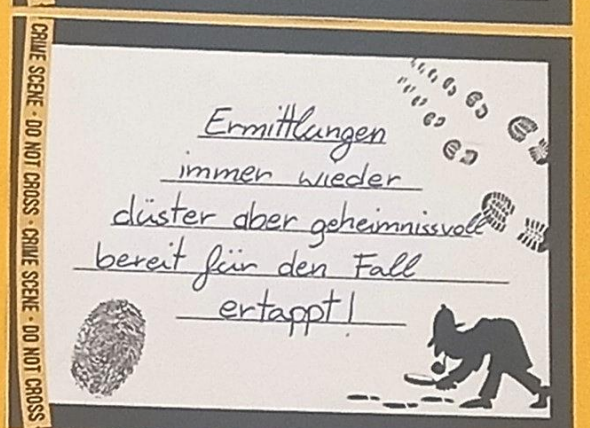 CRIME SCENE · DO NOT CROSS · CRIME SCENE · DO NOT CROSS
Ermittlungen
immer wieder
düster aber geheimnissvoll
bereit für den Fall
ertappt!